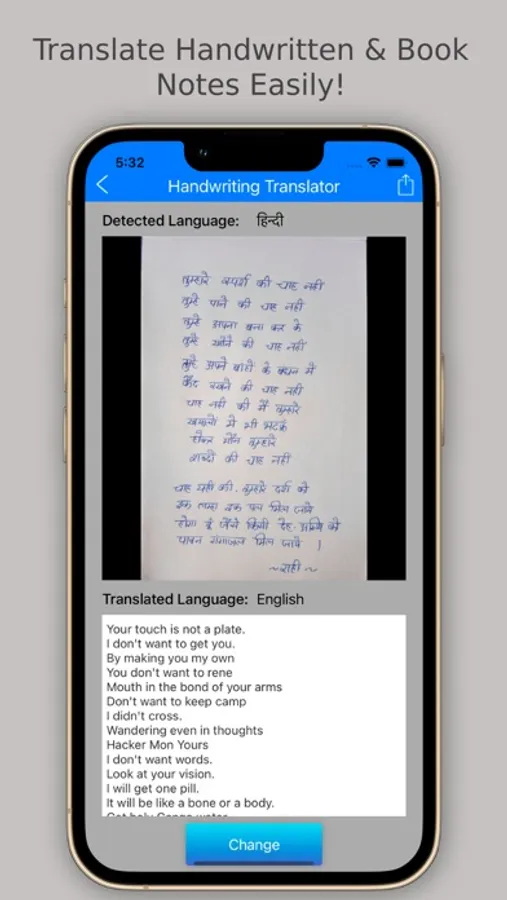 Translate Handwritten & Book
Notes Easily!
5:32
Handwriting Translator
Detected Language: हिन्दी
तुम्हारे स्पर्श की चाह नहीं
तुम्हे पाने की चाह नहीं
तुम्हे अपना बना कर के
तुम्हे खोने की चाह नहीं
तुम्हे अपने बाहों के बंधन में
कैद रखने की चाह नहीं
चाह नहीं की मैं तुम्हारे
ख्यालों में भी भटकूँ
होकर मौन तुम्हारे
शब्दों की चाह नहीं
चाह यही की, तुम्हारे दर्श को
इक लम्हा इक पल मिल जाये
होगा यूं जैसे किसी देह-अस्थि को
पावन गंगाजल मिल जाये ।
~राही~
Translated Language: English
Your touch is not a plate.
I don't want to get you.
By making you my own
You don't want to rene
Mouth in the bond of your arms
Don't want to keep camp
I didn't cross.
Wandering even in thoughts
Hacker Mon Yours
I don't want words.
Look at your vision.
I will get one pill.
It will be like a bone or a body.
Change